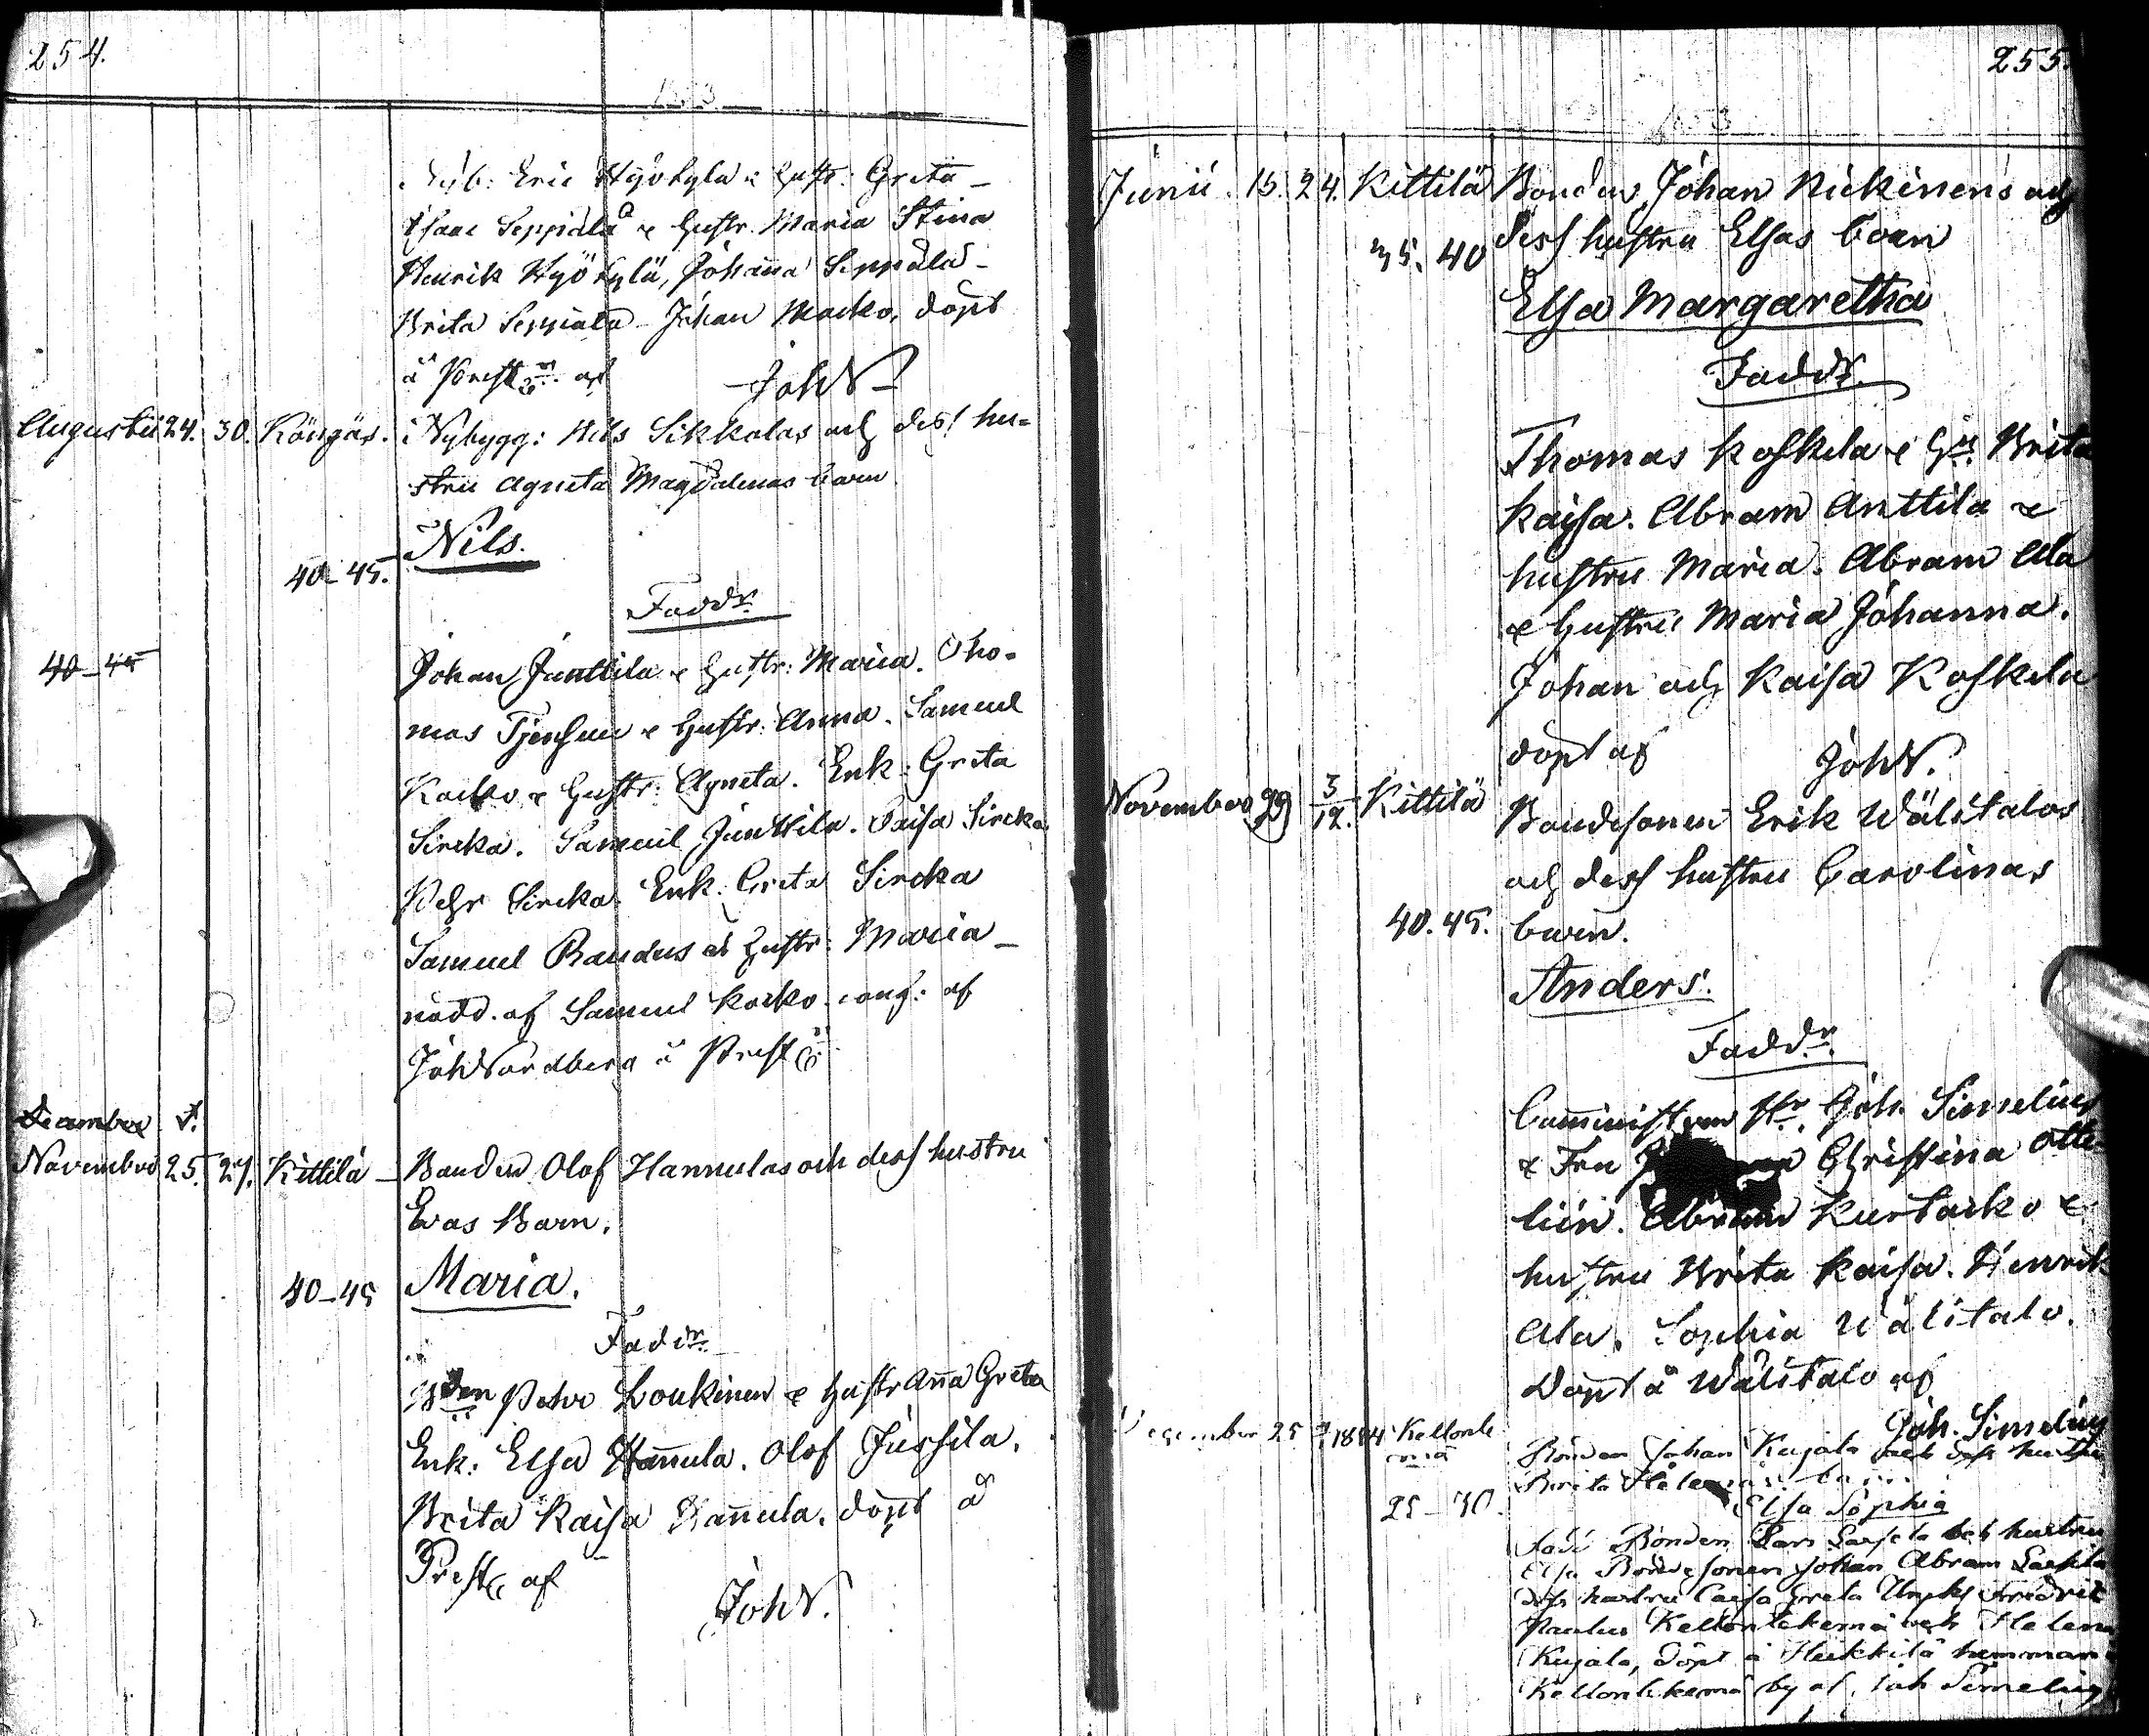 254.
Nyb: Eric Hyötylä & Hustr: Greta
Isaac Seppälä & Hustr. Maria Stina
Henrik Hyötylä, Johanna Seppälä
Brita Seppälä Johan döpt
å Prest af JohN
Augustii 24. 30. Köngäs. Nybygg: Nils Sikkalas och dess hu=
stru Agneta Magdalenas barn
Nils.
40-45.
Faddr
40-45
Johan Junttila & Hustr: Maria. Tho=
mas & Hustr: Anna. Samuel
& Hustr: Agneta. Enk: Greta
Sircka. Samuel Junttila. Caisa Sircka
Pehr Sircka. Enk: Greta Sircka
Samuel & Hustr: Maria
nödd. af Samuel conf: af
Joh Nordberg å Prest
December
November 25. 27. Kittilä Bonden Olof Hannulas och dess hustru
Evas Barn.
40-45 Maria.
Faddr
Petter Loukinen & Hustr Anna Greta
Enk: Elsa Hannula. Olof Jussila.
Brita Kaisa Hannula. döpt å
Prest af
JohN.
255.
Junii. 15. 24. Kittilä Bonden Johan Nickinens och
35. 40 dess hustru Elsas barn
Elsa Margaretha
Faddr.
Thomas Koskela & Brita
Kaisa. Abram Anttila &
hustru Maria. Abram Ala
& Hustru Maria Johanna.
Johan och Kaisa Koskela
döpt af JohN.
November 29 3/12. Kittilä Bondesonen Erik Wälitalos
och dess hustru Carolinas
40. 45. barn.
Anders.
Faddr.
Comministern Hr. Joh. Simelius
& Fru Christina Otte-
lün. Abram Kurtacko &
hustru Brita Kaisa. Henrik
Ala. Sophia Wälitalo.
Döpt å Wälitalo af
Joh. Simelius
December 25 1854 Kellonte
Bonden Johan Kujala och dess hustru
Brita Helenas barn
25-30. Elsa Sophia
Fadd Bonden Lars och hustru
Elsa Bondesonen Johan Abram
dess hustru Caisa Greta Fredrik
Paulus Kellontekemä och Helena
Kujala, döpt å Heikkilä hemman
Kellontekemä by af Joh Simelius